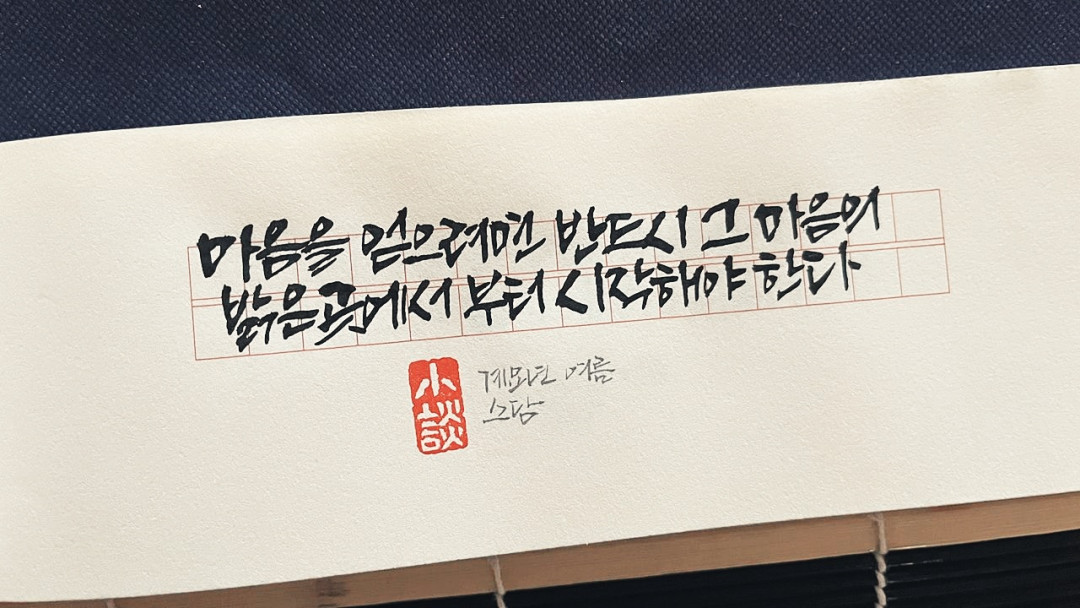 마음을 얻으려면 반드시 그 마음의
밝은 곳에서 부터 시작해야 한다
小談
계묘년 여름
소담